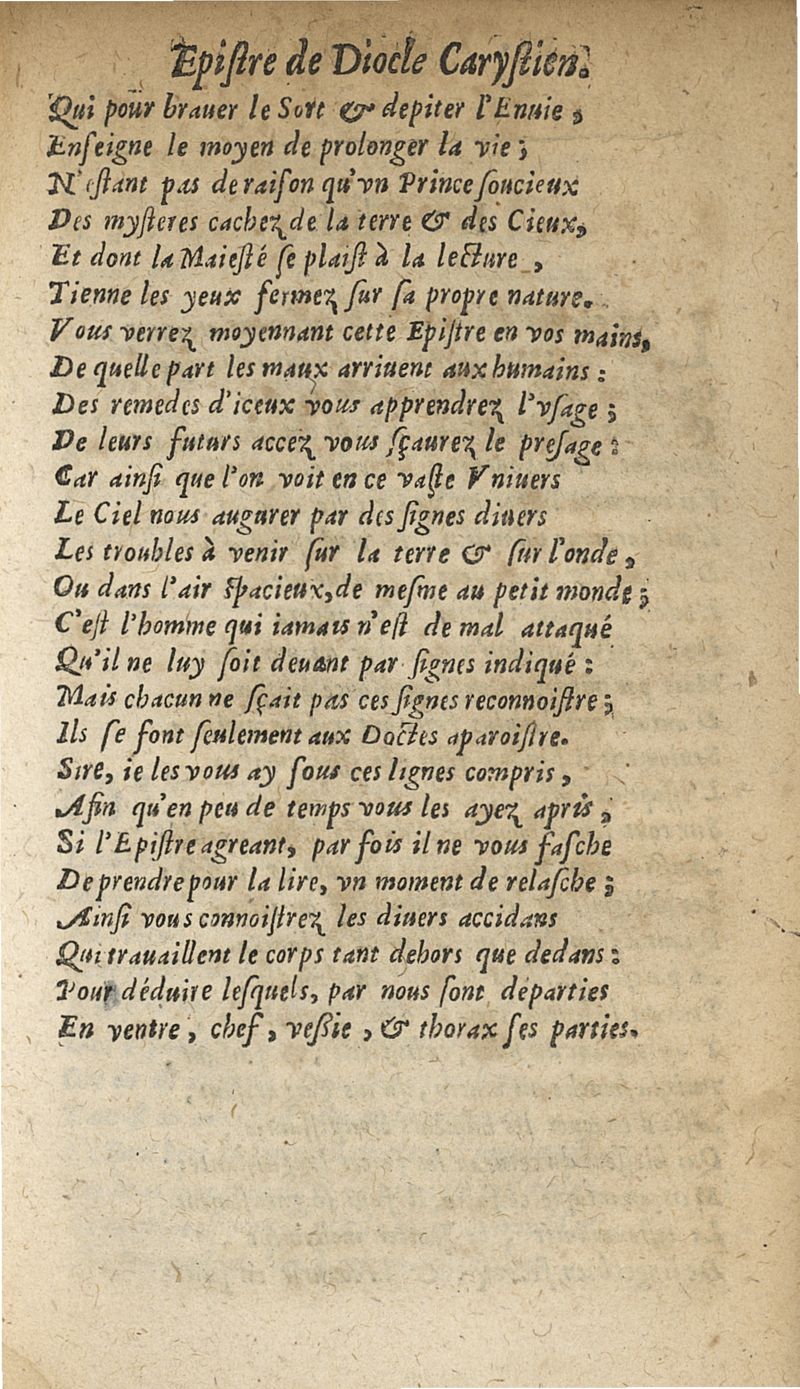 Epiſtre de Diocle Caryſtien.
Qui pour brauer le Sort & depiter l'Enuie,
Enſeigne le moyen de prolonger la vie;
N'eſtant pas de raiſon qu'vn Prince ſoucieux
Des myſteres cachez de la terre & des Cieux,
Et dont la Maieſté ſe plaiſt à la lecture,
Tienne les yeux fermez ſur ſa propre nature.
Vous verrez moyennant cette Epiſtre en vos mains,
De quelle part les maux arriuent aux humains:
Des remedes d'iceux vous apprendrez l'vſage;
De leurs futurs accez vous ſçaurez le preſage:
Car ainſi que l'on voit en ce vaſte Vniuers
Le Ciel nous augurer par des ſignes diuers
Les troubles à venir ſur la terre & ſur l'onde,
Ou dans l'air ſpacieux, de meſme au petit monde;
C'eſt l'homme qui iamais n'eſt de mal attaqué
Qu'il ne luy ſoit deuant par ſignes indiqué:
Mais chacun ne ſçait pas ces ſignes reconnoiſtre;
Ils ſe font ſeulement aux Doctes aparoiſtre.
Sire, ie les vous ay ſous ces lignes compris,
Afin qu'en peu de temps vous les ayez apris,
Si l'Epiſtre agreant, par fois il ne vous faſche
De prendre pour la lire, vn moment de relaſche;
Ainſi vous connoiſtrez les diuers accidans
Qui trauaillent le corps tant dehors que dedans:
Pour déduire leſquels, par nous ſont departies
En ventre, chef, veſſie, & thorax ſes parties.